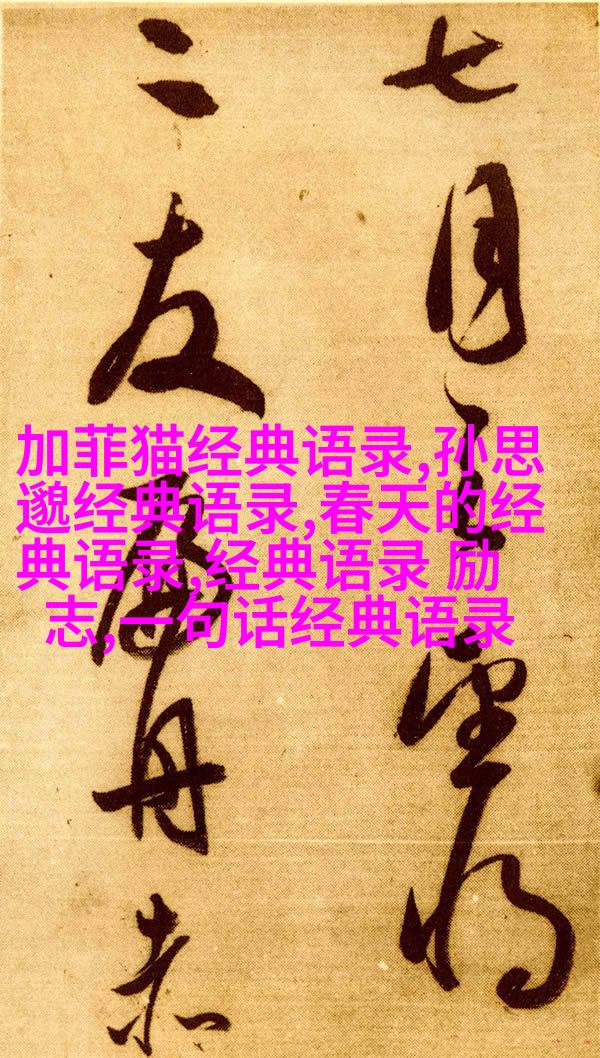 七月望将
二友舟赤
加菲猫经典语录,孙思
邈经典语录,春天的经
典语录,经典语录 励
志,一句话经典语录